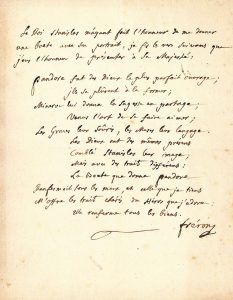 Le Roi Stanislas m'ayant fait l'honneur de me donner
une boete avec son portrait, je fis le vers suivants que
j'eus l'honneur de présenter à Sa Majesté:
Pandore fut des Dieux le plus parfait ouvrage;
ils se plûrent à la former;
Minerve lui donna la sagesse en partage;
Venus l'art de se faire aimer;
Les Graces leur souris, les Muses leur langage.
Les Dieux ont des mêmes présens
Comblé Stanislas leur image;
mais avec des traits différens.
La boete que donna Pandore
Renfermoit tous les maux, et celle que je tiens
M'offre les traits chéris du Héros que j'adore;
Elle renferme tous les biens.
fréron